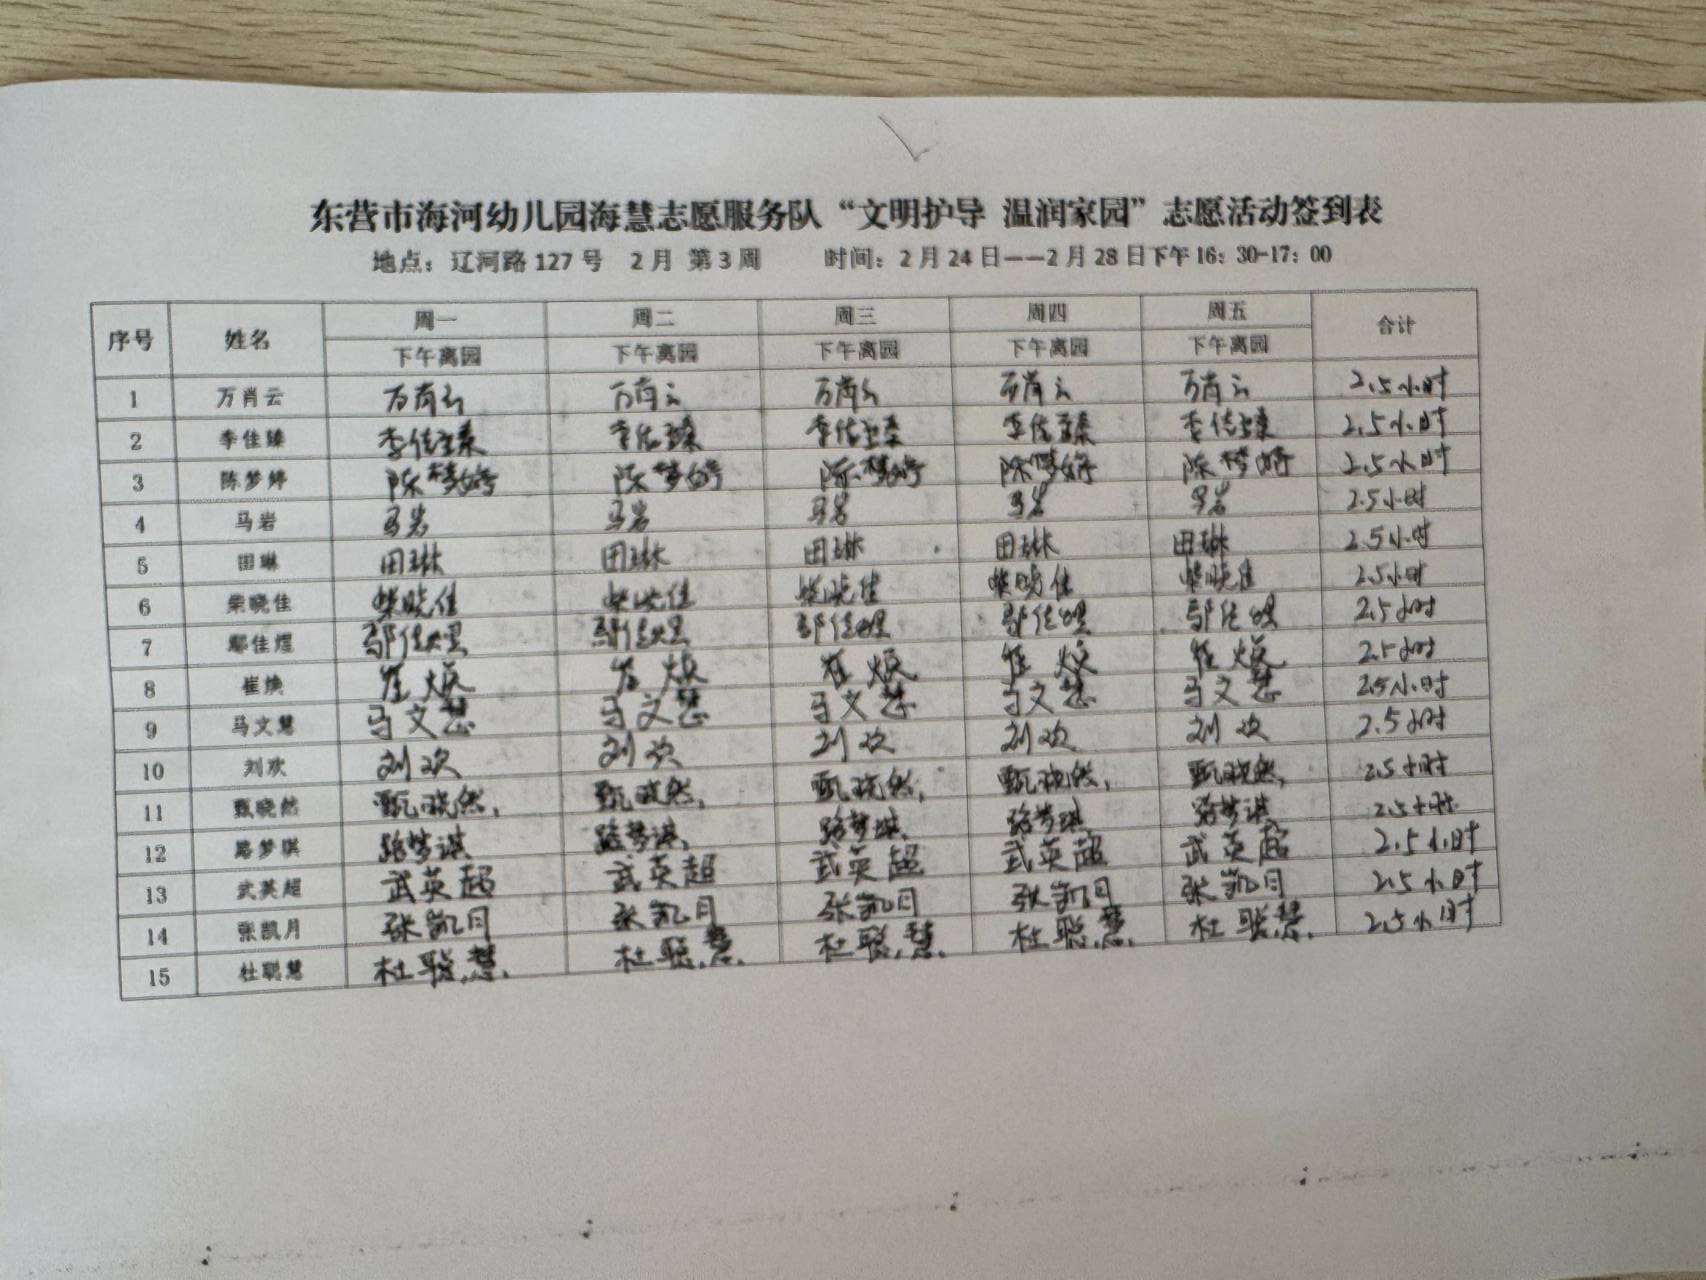 东营市海河幼儿园海慧志愿服务队“文明护导 温润家园”志愿活动签到表
地点：辽河路127号 2月 第3周 时间：2月24日——2月28日下午16：30-17：00
序号 姓名 周一 周二 周三 周四 周五 合计
下午离园 下午离园 下午离园 下午离园 下午离园
1 万肖云 万肖云 万肖云 万肖云 万肖云 万肖云 2.5小时
2 李佳臻 李佳臻 李佳臻 李佳臻 李佳臻 李佳臻 2.5小时
3 陈梦婷 陈梦婷 陈梦婷 陈梦婷 陈梦婷 陈梦婷 2.5小时
4 马岩 马岩 马岩 马岩 马岩 马岩 2.5小时
5 田琳 田琳 田琳 田琳 田琳 田琳 2.5小时
6 柴晓佳 柴晓佳 柴晓佳 柴晓佳 柴晓佳 柴晓佳 2.5小时
7 鄢佳煜 2.5小时
8 崔焕 崔焕 崔焕 崔焕 崔焕 崔焕 2.5小时
9 马文慧 马文慧 马文慧 马文慧 马文慧 马文慧 2.5小时
10 刘欢 刘欢 刘欢 刘欢 刘欢 刘欢 2.5小时
11 甄晓然 甄晓然, 甄晓然, 甄晓然, 甄晓然, 甄晓然, 2.5小时
12 路梦琪 路梦琪 路梦琪 路梦琪 路梦琪 路梦琪 2.5小时
13 武英超 武英超 武英超 武英超 武英超 武英超 2.5小时
14 张凯月 张凯月 张凯月 张凯月 张凯月 张凯月 2.5小时
15 杜聪慧 杜聪慧. 杜聪慧. 杜聪慧. 杜聪慧. 杜聪慧. 2.5小时